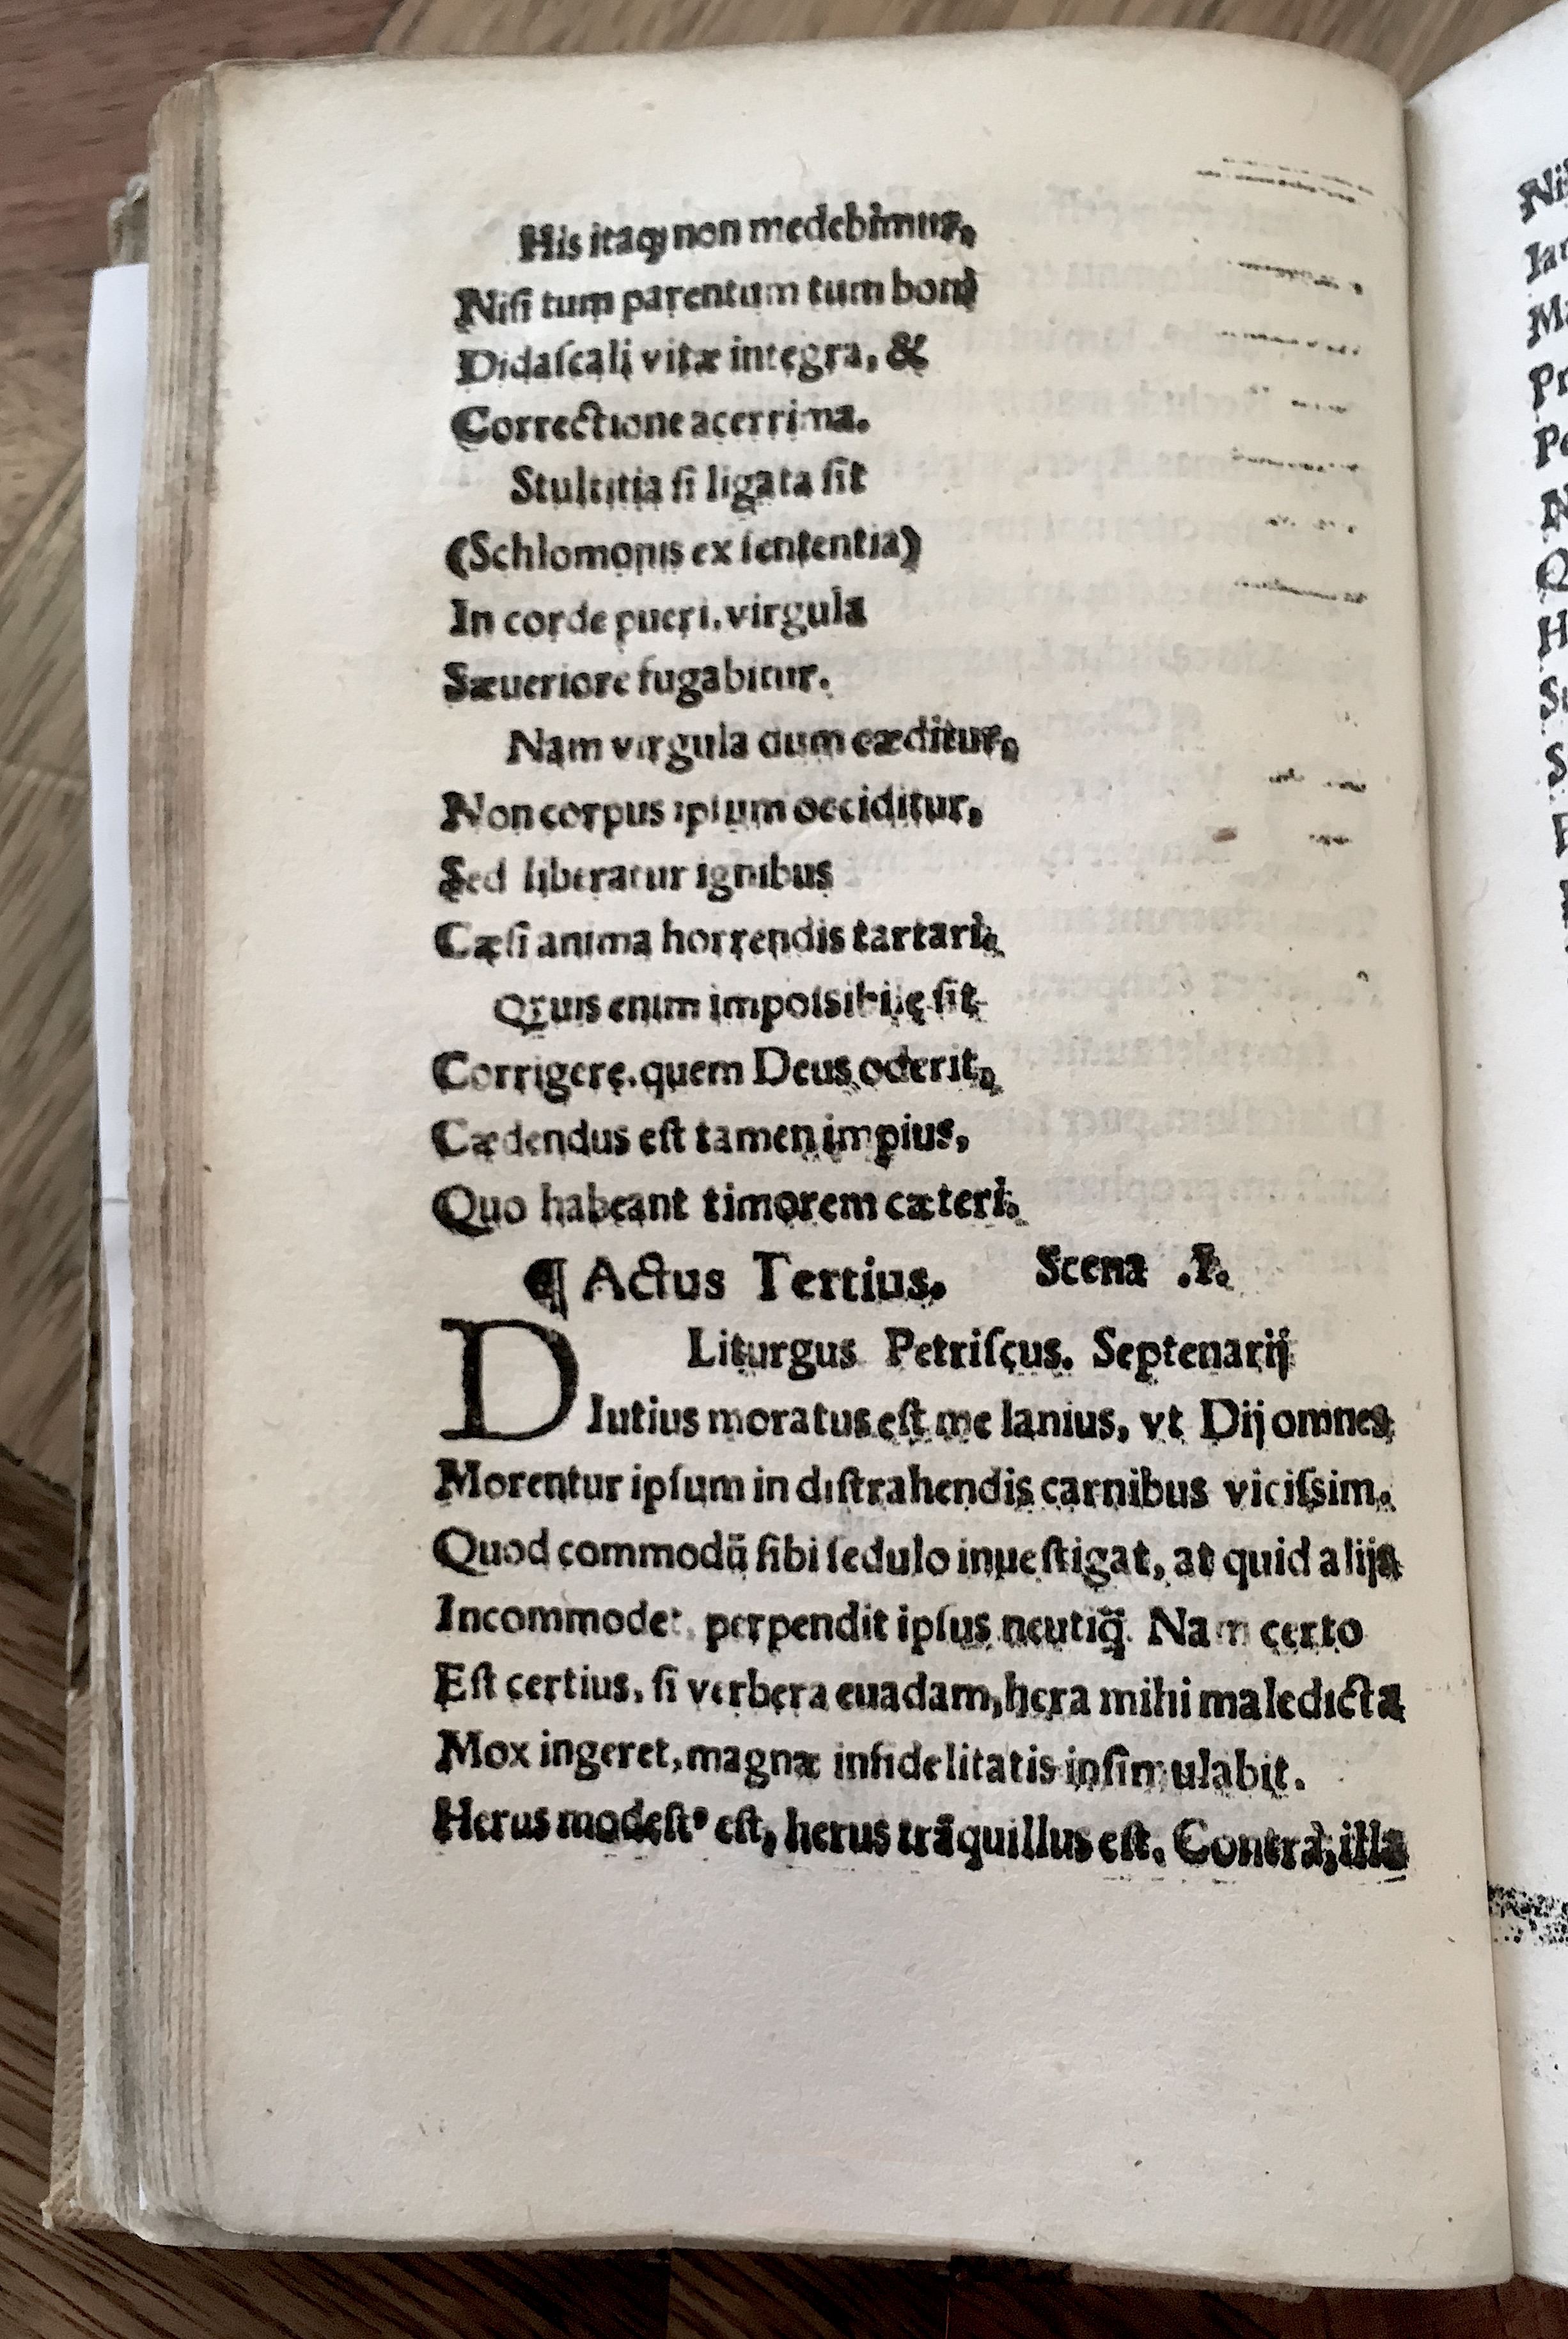 His itaq; non medebimur,
Niſi tum parentum tum boni
Didaſcali vitæ integra, &
Correctione acerrima.
Stultitia ſi ligata ſit
(Schlomonis ex ſententia)
In corde pueri, virgula
Sæueriore fugabitur.
Nam virgula dum cæditur,
Non corpus ipſum occiditur,
Sed liberatur ignibus
Cæſi anima horrendis tartari.
Quis enim impoſsibile ſit
Corrigere, quem Deus oderit,
Cædendus eſt tamen impius,
Quo habeant timorem cæteri.
¶ Actus Tertius. Scena .I.
Liturgus Petriſcus. Septenarij
Diutius moratus eſt me lanius, vt Dij omnes
Morentur ipſum in diſtrahendis carnibus viciſsim.
Quod commodū ſibi ſedulo inueſtigat, at quid alijs
Incommodet, perpendit ipſus neutiq̃. Nam certo
Eſt certius, ſi verbera euadam, hera mihi maledicta
Mox ingeret, magnæ infidelitatis inſimulabit.
Herus modeſtꝰ eſt, herus trāquillus eſt. Contrà, illa
Ni
Ia
M
Pr
Pe
N
Q
H
S